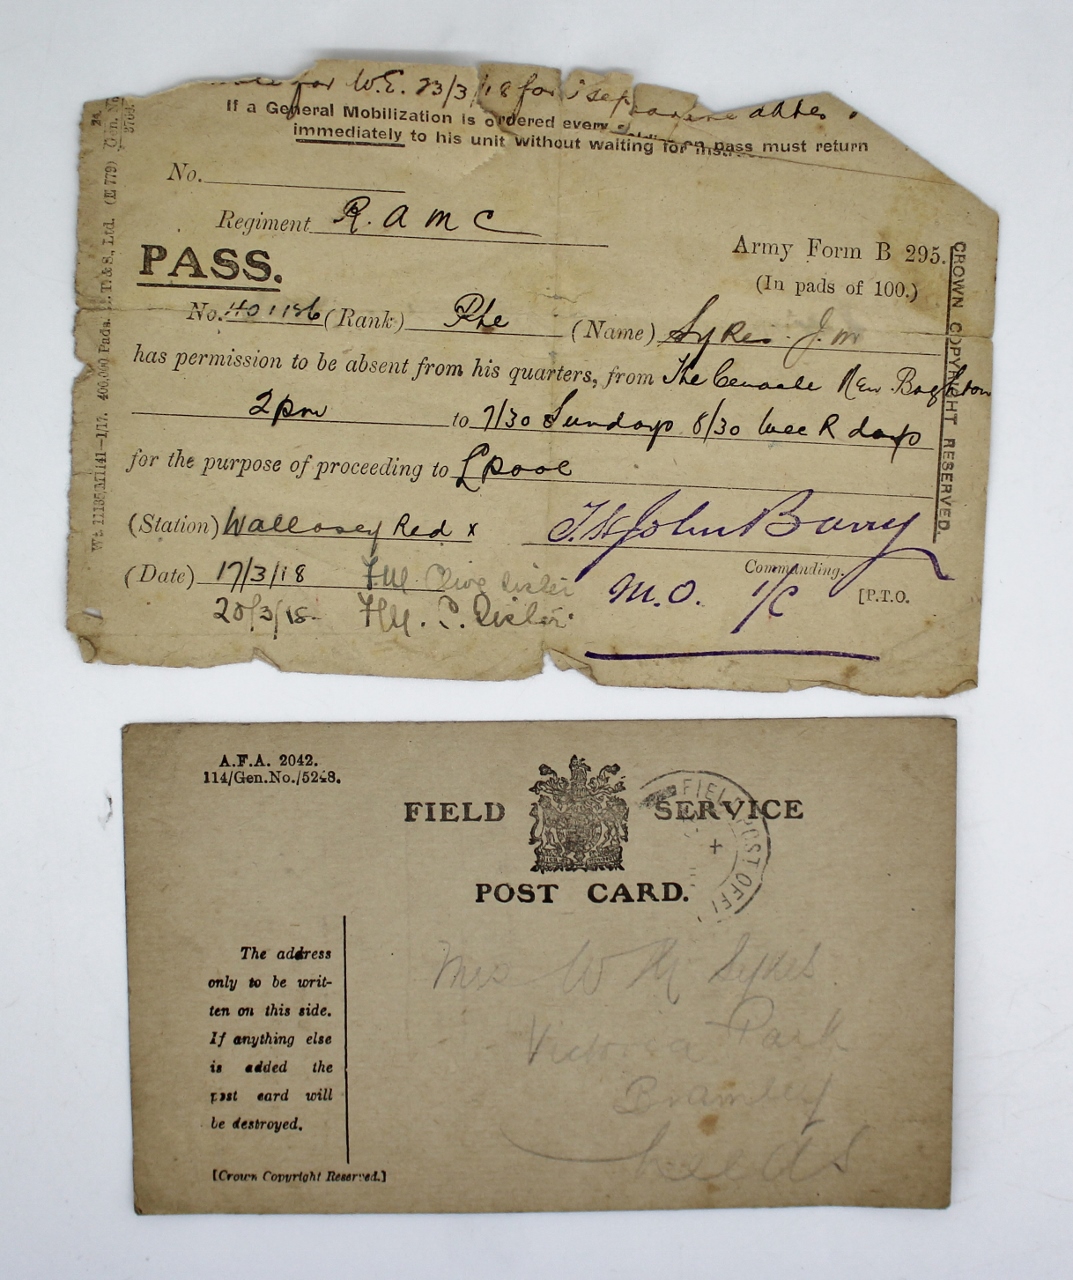 for W.E. 23/3/18 for
If a General Mobilization is ordered every on pass must return
immediately to his unit without waiting for
No.
Regiment R.A M C
Army Form B 295.
PASS.
(In pads of 100.)
No. 401186 (Rank) Pte (Name) Sykes J.M
has permission to be absent from his quarters, from The New Brighton
2pm to 7/30 Sundays 8/30 Week days
for the purpose of proceeding to Lpool
(Station) Wallasey Red x
(Date) 17/3/18
Commanding.
20/3/18
M.O. i/c
[P.T.O.
CROWN COPYRIGHT RESERVED.
A.F.A. 2042.
114/Gen.No./5248.
FIELD SERVICE
POST CARD.
FIELD POST OFFI
The address
only to be writ-
ten on this side.
If anything else
is added the
post card will
be destroyed.
[Crown Copyright Reserved.]
Mrs W H Sykes
Victoria Park
Bramley
Leeds